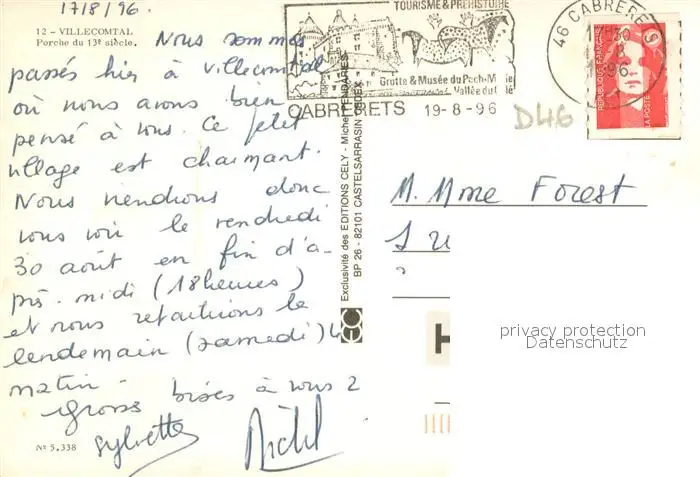 17/8/96.
12 - VILLECOMTAL
Porche du 13e siècle.
Nous sommes
passés hier à Villecomtal
où nous avons bien
pensé à vous. Ce petit
village est charmant.
Nous viendrons donc
vous voir le vendredi
30 août en fin d'a-
près-midi (18heures)
et nous repartirons le
lendemain (samedi)
matin -
Grosses bises à vous 2
Sylvette Michel
No 5.338
Exclusivité des EDITIONS CELY - Michel
BP 26 - 82101 CASTELSARRASIN CEDEX
TOURISME & PRÉHISTOIRE
Grotte & Musée du Pech-Merle
Vallée du Célé
CABRERETS 19-8-96
46 CABRERETS
1996
RÉPUBLIQUE FRANÇAISE
LA POSTE
D46
M. Mme Forest
privacy protection
Datenschutz